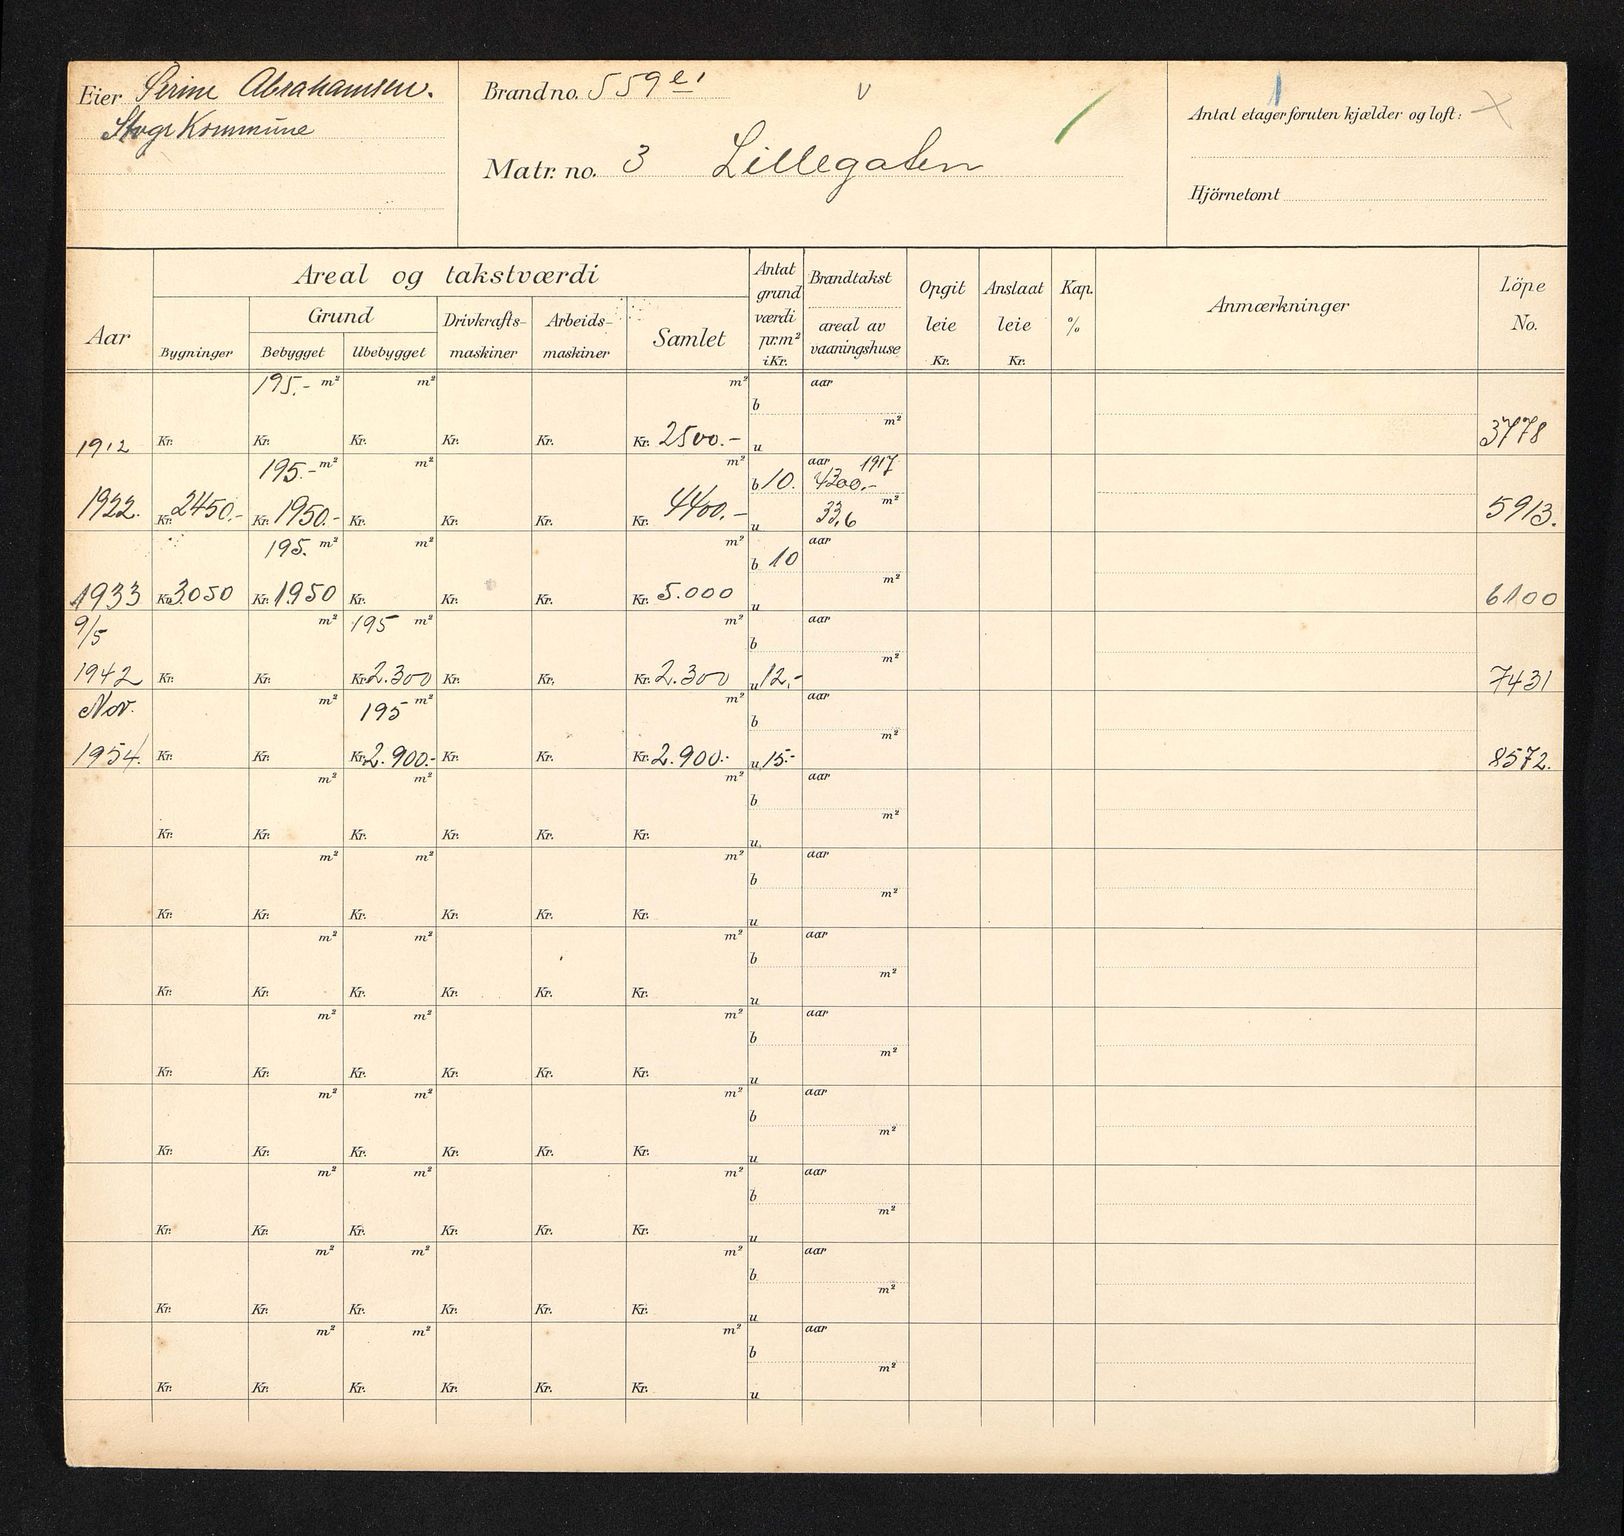 Eier Serine Abrahamsen.
Stvgr Kommune
Brand no. 559 e1
v
Matr. no. 3 Lillegaten
1
Antal etager foruten kjælder og loft: x
Hjörnetomt
Aar
Areal og takstværdi
Bygninger
Grund
Bebygget Ubebygget
Drivkrafts-
maskiner
Arbeids-
maskiner
Samlet
Antat
grund
værdi
pr.m²
i Kr.
Brandtakst
areal av
vaaningshuse
Opgit
leie
Kr.
Anslaat
leie
Kr.
Kap.
%
Anmærkninger
Löpe
No.
195.- m² m² m² b aar
1912 Kr. Kr. Kr. Kr. Kr. Kr. 2500.- u m² 3778
195.- m² m² m² b 10. aar 1917 4300.-
1922. Kr. 2450.- Kr. 1950.- Kr. Kr. Kr. Kr. 4400.- u 33,6 m² 5913.
195. m² m² m² b 10 aar
1933 Kr. 3050 Kr. 1950 Kr. Kr. Kr. Kr. 5.000 u m² 6100
9/5 m² 195 m² m² b aar
1942 Kr. Kr. Kr. 2.300 Kr. Kr. Kr. 2.300 u 12,- m² 7431
Nov. m² 195 m² m² b aar
1954. Kr. Kr. Kr. 2.900.- Kr. Kr. Kr. 2.900.- u 15.- m² 8572.
m² m² m² b aar
Kr. Kr. Kr. Kr. Kr. Kr. u m²
m² m² m² b aar
Kr. Kr. Kr. Kr. Kr. Kr. u m²
m² m² m² b aar
Kr. Kr. Kr. Kr. Kr. Kr. u m²
m² m² m² b aar
Kr. Kr. Kr. Kr. Kr. Kr. u m²
m² m² m² b aar
Kr. Kr. Kr. Kr. Kr. Kr. u m²
m² m² m² b aar
Kr. Kr. Kr. Kr. Kr. Kr. u m²
m² m² m² b aar
Kr. Kr. Kr. Kr. Kr. Kr. u m²
m² m² m² b aar
Kr. Kr. Kr. Kr. Kr. Kr. u m²